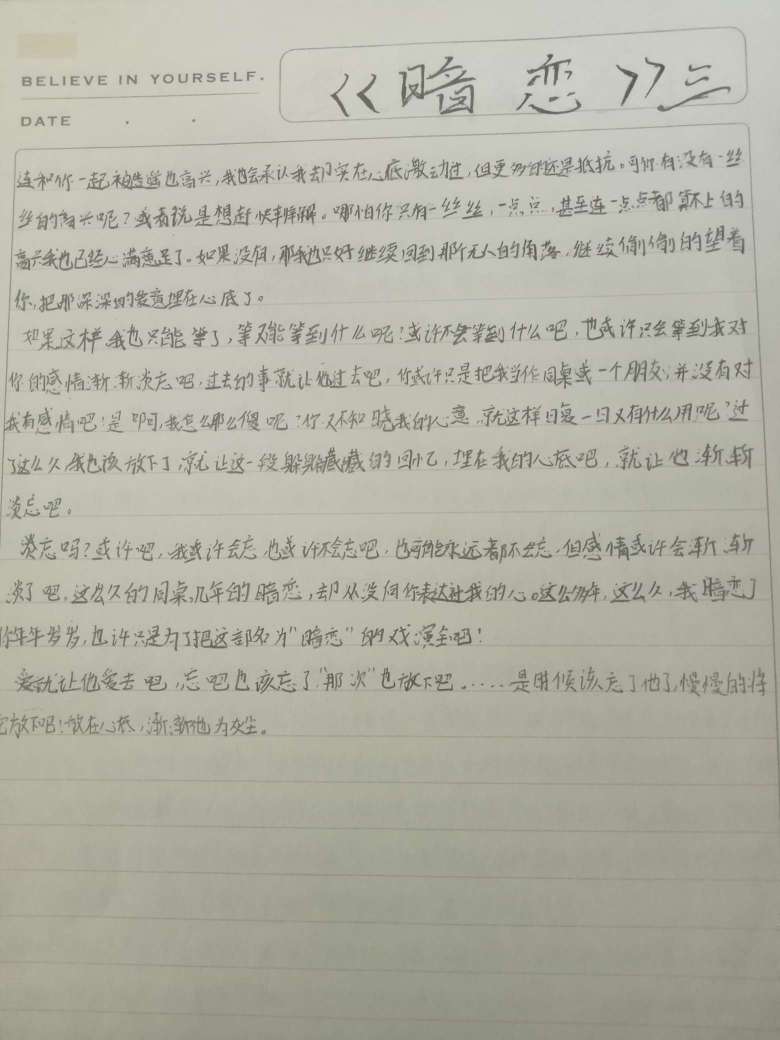 BELIEVE IN YOURSELF.
《暗恋》三
DATE . .
连和你一起被造谣也高兴,我也会承认我却实在心底激动过,但更多的还是抵抗。可你有没有一丝
丝的高兴呢?或者说是想赶快解。哪怕你只有一丝丝,一点点,甚至连一点点都算不上的
高兴我也已经心满意足了。如果没有,那我也只好继续回到那个无人的角落,继续偷偷的望着
你,把那深深的爱意埋在心底了。
如果这样我也只能等了,等又能等到什么呢?或许不会等到什么吧,也或许只会等到我对
你的感情渐渐淡忘吧,过去的事就让他过去吧,你或许只是把我当作同桌或一个朋友,并没有对
我有感情吧!是啊,我怎么那么傻呢?你又不知晓我的心意,就这样日复一日又有什么用呢?过
了这么久我也该放下了,就让这一段躲躲藏藏的回忆,埋在我的心底吧,就让他渐渐
淡忘吧。
淡忘吗?或许吧,我或许会忘也或许不会忘吧,也可能永远都不会忘,但感情或许会渐渐
淡了吧,这么久的同桌,几年的暗恋,却从没向你表达过我的心。这么多年,这么久,我暗恋了
你年年岁岁,也许只是为了把这部名为"暗恋"的戏演全吧!
爱就让他爱去吧,忘吧也该忘了"那次"也放下吧。.....是时候该忘了他了,慢慢的将
它放下吧!放在心底,渐渐地为灰尘。